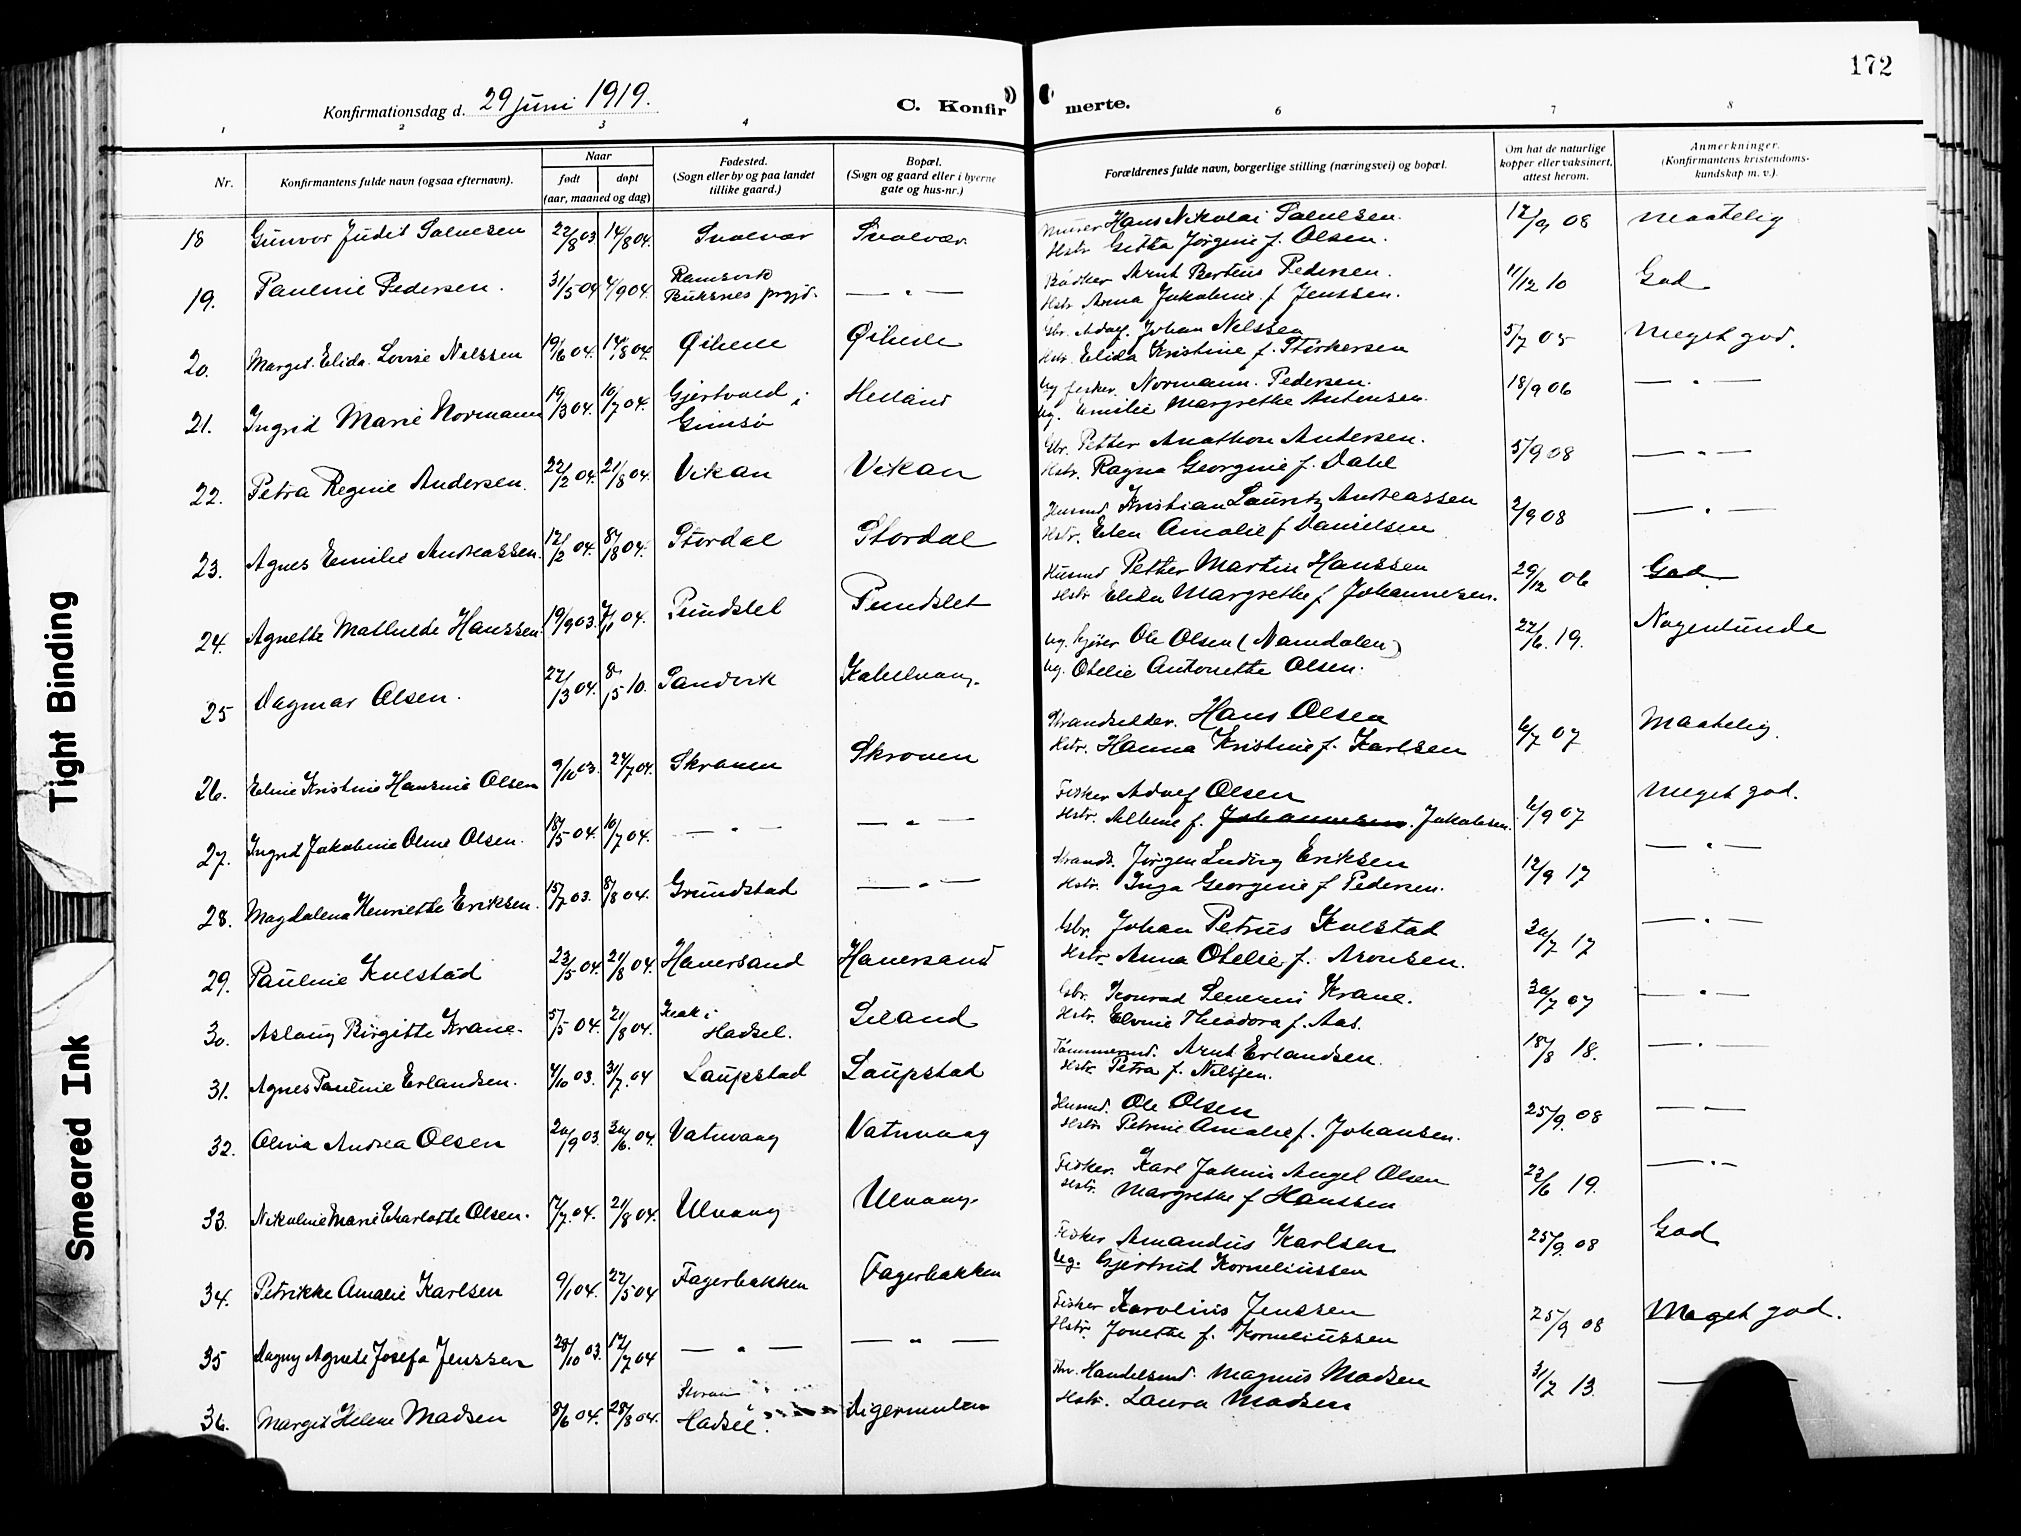 172
Konfirmationsdag d. 29 juni 1919.
C. Konfirmerte.
1 2 3 4 6 7 8
Nr.
Konfirmantens fulde navn (ogsaa efternavn).
Naar
født døpt
(aar, maaned og dag)
Fødested.
(Sogn eller by og paa landet
tillike gaard.)
Bopæl.
(Sogn og gaard eller i byerne
gate og hus-nr.)
Forældrenes fulde navn, borgerlige stilling (næringsvei) og bopæl.
Om hat de naturlige
kopper eller vaksinert,
attest herom.
Anmerkninger.
(Konfirmantens kristendoms-
kundskap m. v.).
18 Gunvor Judit Solvesen 22/8 03. 14/8 04. Svolvær Svolvær. Murer Hans Nikolai Solvesen. 12/9 08 Maatelig
Hstr. Gitta Jørgine f. Olsen.
19. Pauline Pedersen. 31/5 04 4/9 04. Ramsvik
Buksnes prgjd. — " — Bødker Arnt Berteus Pedersen. 11/12 10 God
Hstr. Anna Jakobine f. Jenssen.
20. Margit Elida Lovise Nilssen 19/6 04. 14/8 04. Øihelle Øihelle Gbr. Adolf Johan Nilssen 5/7 05 Meget god.
Hstr. Elida Kristine f. Størkersen
21. Ingrid Marie Normann 19/3 04. 10/7 04. Gjerstvold i
Gimsø Helland Ug. fisker Normann Pedersen. 18/9 06 — " —
Ug. Emilie Margrethe Antonsen.
22. Petra Regine Andersen. 22/2 04. 21/8 04. Vikan Vikan Gbr. Petter Anathon Andersen. 5/9 08 — " —
Hstr. Ragna Georgine f. Dahl
23. Agnes Emilie Andreassen. 12/2 04. 8/8 04. Stordal Stordal Husmd. Kristian Lauritz Andreassen 2/9 08 — " —
Hstr. Elen Amalie f. Danielsen
24. Agnethe Mathilde Hanssen 19/9 03. 04. Pundslet Pundslet Husmd. Petter Martin Hanssen 29/12 06 God
Hstr. Elida Margrethe f. Johannesen.
25 Dagmar Olsen. 27/3 04. 8/5 10. Sandvik Kabelvaag. Ug. Ole Olsen (Namdalen) 22/6. 19. Nogenlunde
Ug. Otelie Antonette Olsen.
26. Eline Kristine Hansine Olsen 9/10 03. 24/7 04. Skroven Skroven Strandsidder. Hans Olsen 6/7 07 Maatelig.
Hstr. Hanna Kristine f. Karlsen
27. Ingrid Jakobine Oline Olsen. 18/5 04. 10/7 04. — " — — " — Fisker Adolf Olsen 6/9 07 Meget god.
Hstr. Albine f. Johannesen. Jakobsen.
28. Magdalena Henriette Eriksen. 15/7 03. 8/8 04. Grundstad — " — Strands. Jørgen Ludvig Eriksen 12/9 17 — " —
Hstr. Inga Georgine f. Pedersen.
29. Pauline Kvlstad 23/5 04. 21/8 04. Haversand Haversand Gbr. Johan Petrus Kolstad 30/7 17 — " —
Hstr. Anna Otelie f. Aronsen.
30. Aslaug Birgitte Krane. 5/5 04. 21/8 04. i
Hadsel. Seland Gbr. Konrad Severin Krane. 30/7 07 — " —
Hstr. Elvine Theodora f. Aas.
31. Agnes Pauline Erlandsen. 4/10 03. 31/7. 04 Laupstad Laupstad Tømmermd. Arnt Erlandsen. 18/8 18. — " —
Hstr. Petra f. Nilssen.
32. Olivia Andrea Olsen 20/9 03. 30/6. 04. Vatnvaag Vatnvaag Husmd. Ole Olsen 25/9. 08 — " —
Hstr. Petrine Amalie f. Johansen.
33. Nikoline Marie Charlotte Olsen. 17/7. 04. 21/8 04. Ulvaag Ulvaag. Fisker. Karl Johnis Angel Olsen 22/6 19. — " —
Hstr. Margrethe f. Hanssen
34. Petrikke Amalie Karlsen 9/1 04. 22/5 04 Fagerbakken Fagerbakken Fisker Amandus Karlsen 25/9. 08 God
Ug. Gjertrud Korneliussen
35 Dagny Agnete Josefa Jenssen 28/10 03. 17/7 04 — " — — " — Fisker Karolius Jenssen 25/9 08 Meget god.
Hstr. Jonethe f. Korneliussen
36. Margit Helene Madsen 8/6 04. 28/8 04.
Hadsel. Digermulen Fhv. Handelsmd. Magnus Madsen 31/7 13.
Hstr. Laura Madsen
Tight Binding
Smeared Ink